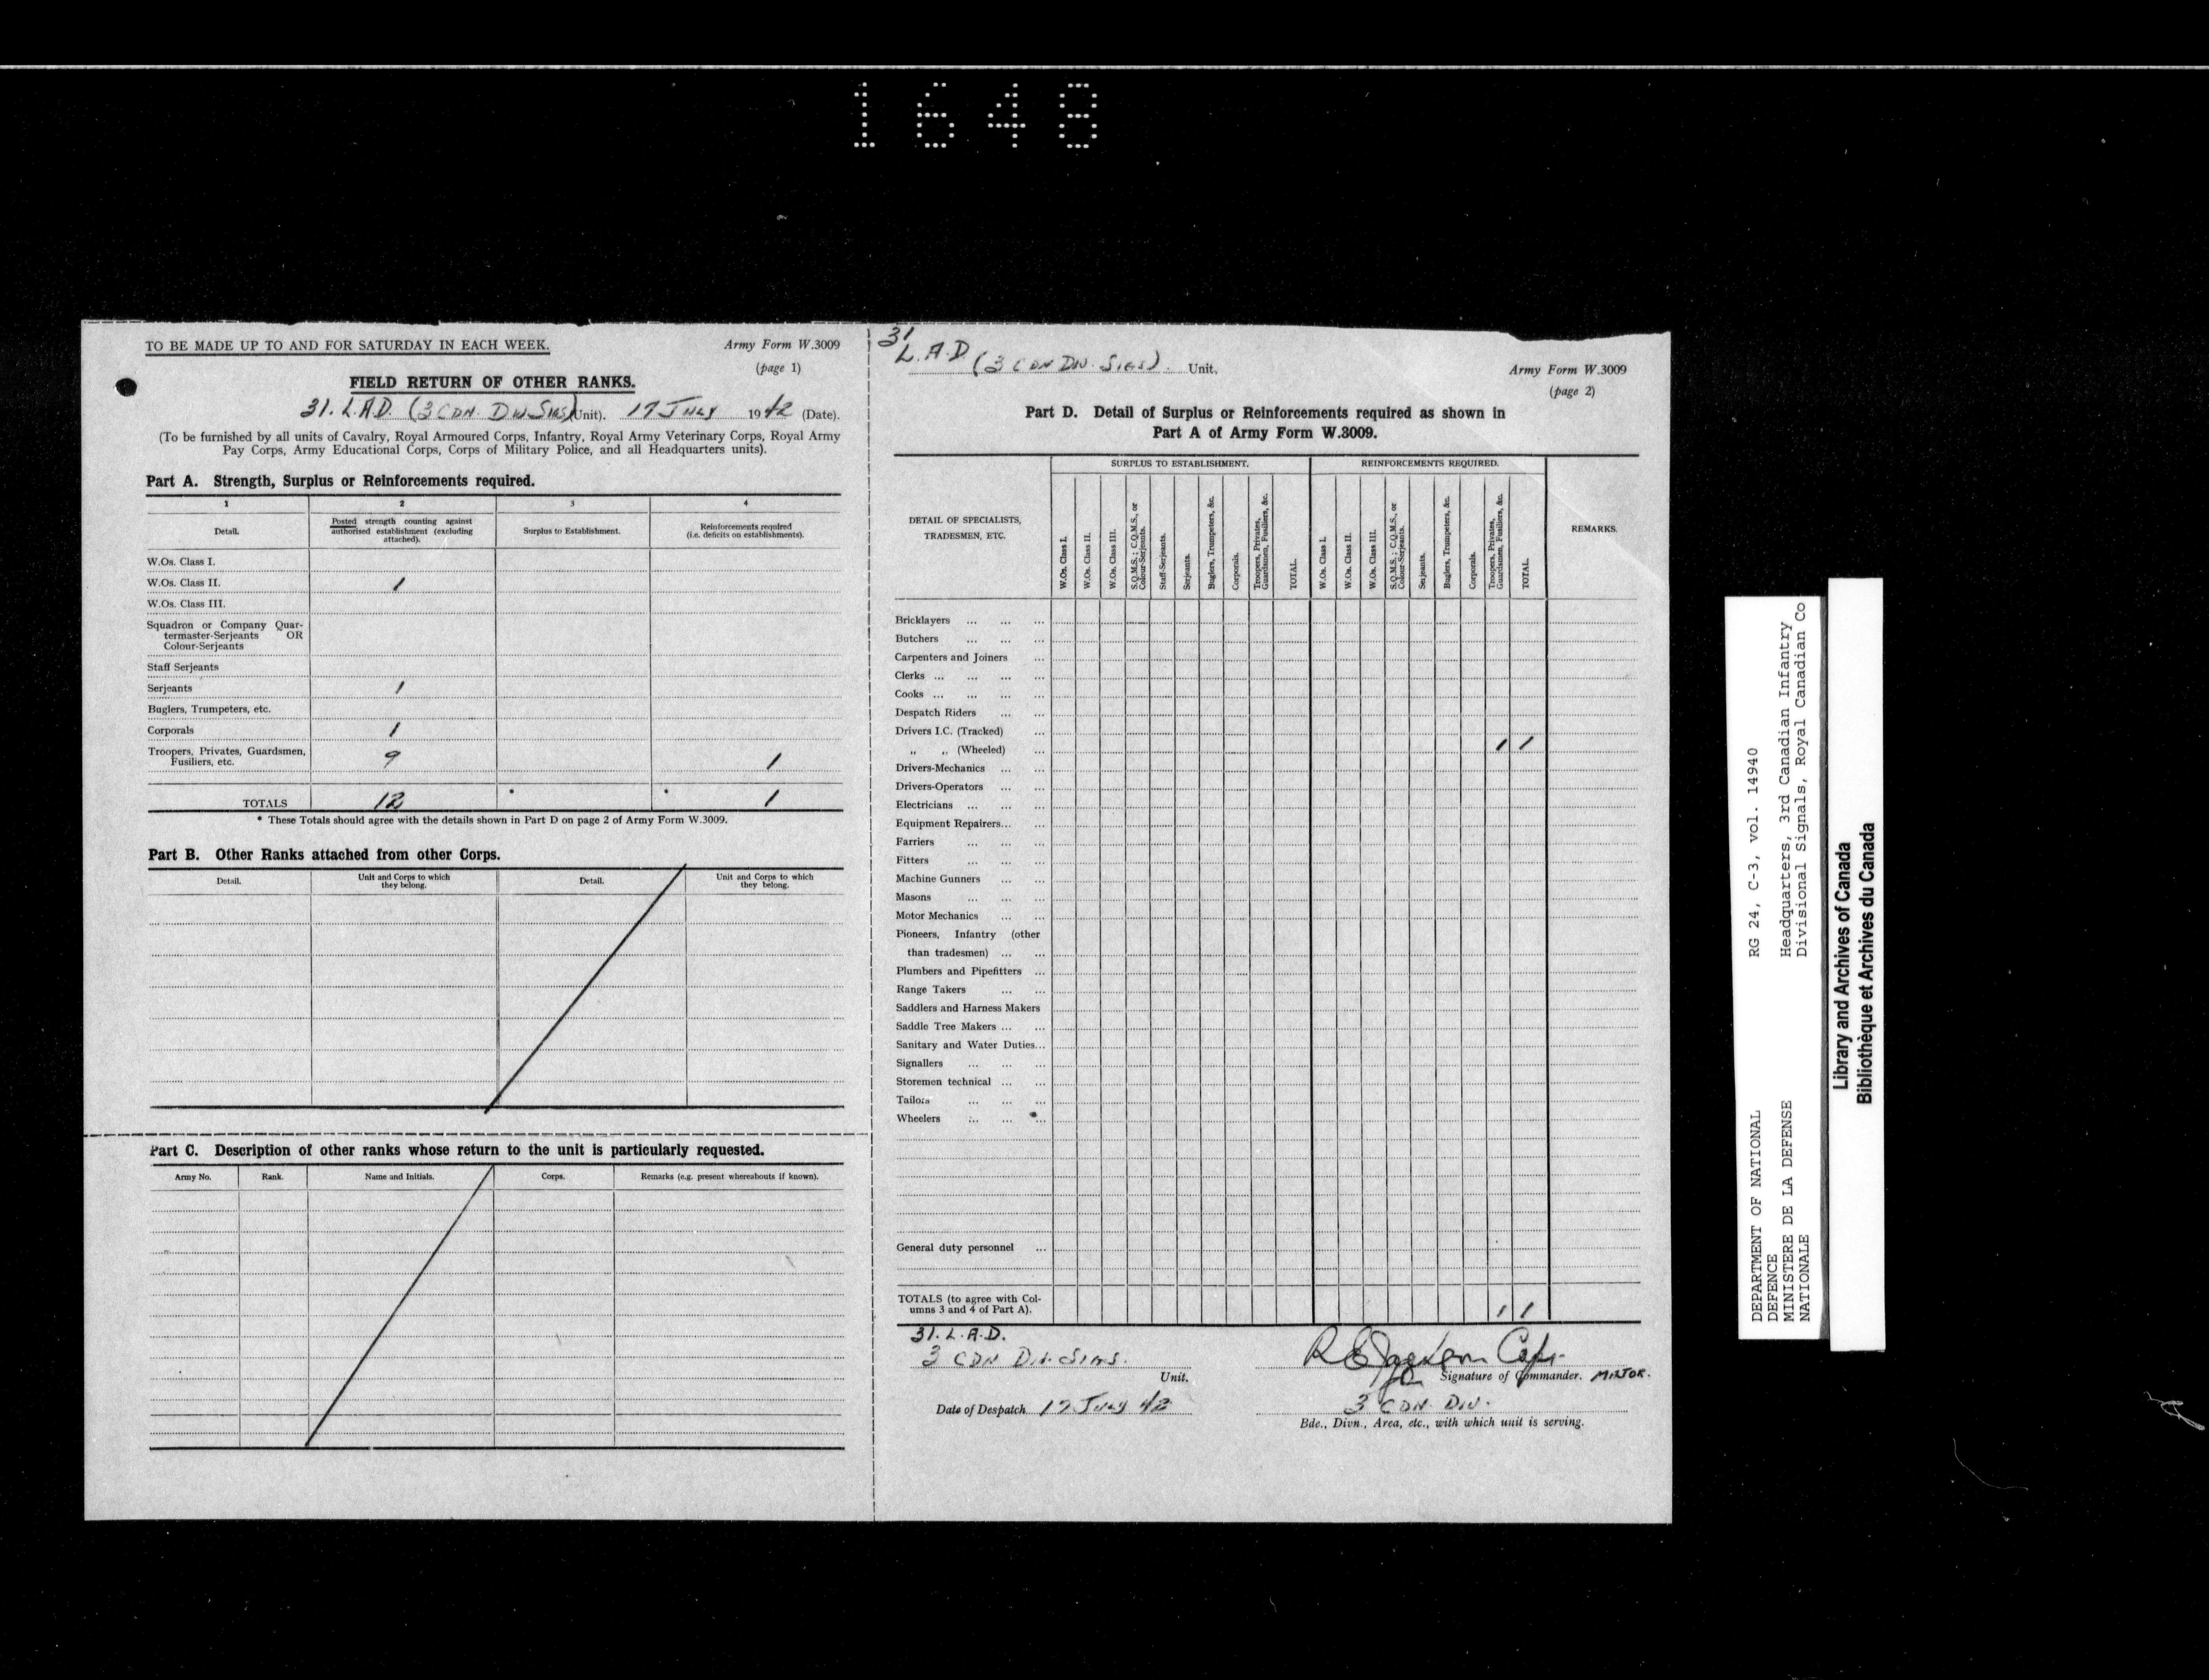 1648
TO BE MADE UP TO AND FOR SATURDAY IN EACH WEEK.
Army Form W.3009
(page 1)
FIELD RETURN OF OTHER RANKS.
31. L.A.D. (3 CDN. DIV SIGS) (Unit). 17 JULY 1942 (Date).
(To be furnished by all units of Cavalry, Royal Armoured Corps, Infantry, Royal Army Veterinary Corps, Royal Army
Pay Corps, Army Educational Corps, Corps of Military Police, and all Headquarters units).
Part A. Strength, Surplus or Reinforcements required.
1 2 3 4
Detail.
Posted strength counting against
authorised establishment (excluding
attached).
Surplus to Establishment.
Reinforcements required
(i.e. deficits on establishments).
W.Os. Class I.
W.Os. Class II. 1
W.Os. Class III.
Squadron or Company Quar-
termaster-Serjeants OR
Colour-Serjeants
Staff Serjeants
Serjeants 1
Buglers, Trumpeters, etc.
Corporals 1
Troopers, Privates, Guardsmen,
Fusiliers, etc. 9 1
TOTALS 12 * * 1
* These Totals should agree with the details shown in Part D on page 2 of Army Form W.3009.
Part B. Other Ranks attached from other Corps.
Detail.
Unit and Corps to which
they belong.
Detail.
Unit and Corps to which
they belong.
Part C. Description of other ranks whose return to the unit is particularly requested.
Army No. Rank. Name and Initials. Corps. Remarks (e.g. present whereabouts if known).
31
L.A.D. (3 CDN DIV. SIGS). Unit.
Army Form W.3009
(page 2)
Part D. Detail of Surplus or Reinforcements required as shown in
Part A of Army Form W.3009.
DETAIL OF SPECIALISTS,
TRADESMEN, ETC.
SURPLUS TO ESTABLISHMENT.
W.Os. Class I.
W.Os. Class II.
W.Os. Class III.
S.Q.M.S.; C.Q.M.S., or
Colour-Serjeants.
Staff-Serjeants.
Serjeants.
Buglers, Trumpeters, &c.
Corporals.
Troopers, Privates,
Guardsmen, Fusiliers, &c.
TOTAL.
REINFORCEMENTS REQUIRED.
W.Os. Class I.
W.Os. Class II.
W.Os. Class III.
S.Q.M.S.; C.Q.M.S., or
Colour-Serjeants.
Serjeants.
Buglers, Trumpeters, &c.
Corporals.
Troopers, Privates,
Guardsmen, Fusiliers, &c.
TOTAL.
REMARKS.
Bricklayers ... ... ...
Butchers ... ... ...
Carpenters and Joiners ...
Clerks ... ... ... ...
Cooks ... ... ... ...
Despatch Riders ... ...
Drivers I.C. (Tracked) ...
„ „ (Wheeled) ... 1 1
Drivers-Mechanics ... ...
Drivers-Operators ... ...
Electricians ... ... ...
Equipment Repairers... ...
Farriers ... ... ...
Fitters ... ... ...
Machine Gunners ... ...
Masons ... ... ...
Motor Mechanics ... ...
Pioneers, Infantry (other
than tradesmen) ... ...
Plumbers and Pipefitters ...
Range Takers ... ...
Saddlers and Harness Makers
Saddle Tree Makers ... ...
Sanitary and Water Duties...
Signallers ... ... ...
Storemen technical ... ...
Tailors ... ... ...
Wheelers ... ... ...
General duty personnel ...
TOTALS (to agree with Col-
umns 3 and 4 of Part A). 1 1
31. L.A.D.
3 CDN DIV. SIGS.
Unit.
Date of Despatch 17 JULY 42
Capt.
Signature of Commander. MAJOR.
3 CDN. DIV.
Bde., Divn., Area, etc., with which unit is serving.
DEPARTMENT OF NATIONAL
DEFENCE
MINISTERE DE LA DEFENSE
NATIONALE
RG 24, C-3, vol. 14940
Headquarters, 3rd Canadian Infantry
Divisional Signals, Royal Canadian Co
Library and Archives of Canada
Bibliothèque et Archives du Canada